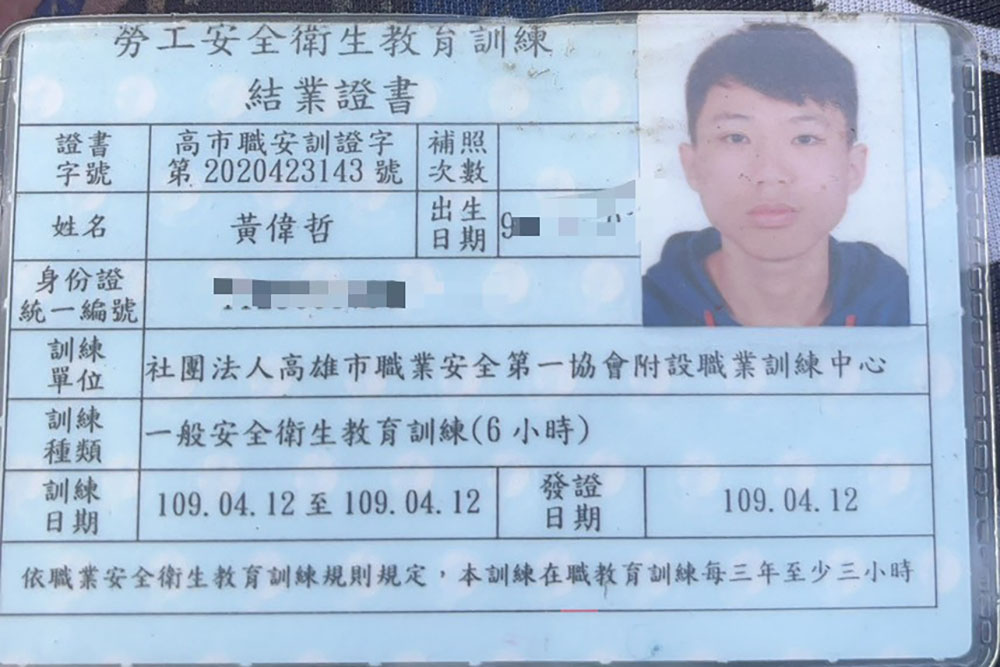 勞工安全衛生教育訓練
結業證書
證書字號
高市職安訓證字
第 2020423143 號
補照次數
姓名
黃偉哲
出生日期
9
身份證統一編號
訓練單位
社團法人高雄市職業安全第一協會附設職業訓練中心
訓練種類
一般安全衛生教育訓練(6 小時)
訓練日期
109.04.12 至 109.04.12
發證日期
109.04.12
依職業安全衛生教育訓練規則規定，本訓練在職教育訓練每三年至少三小時